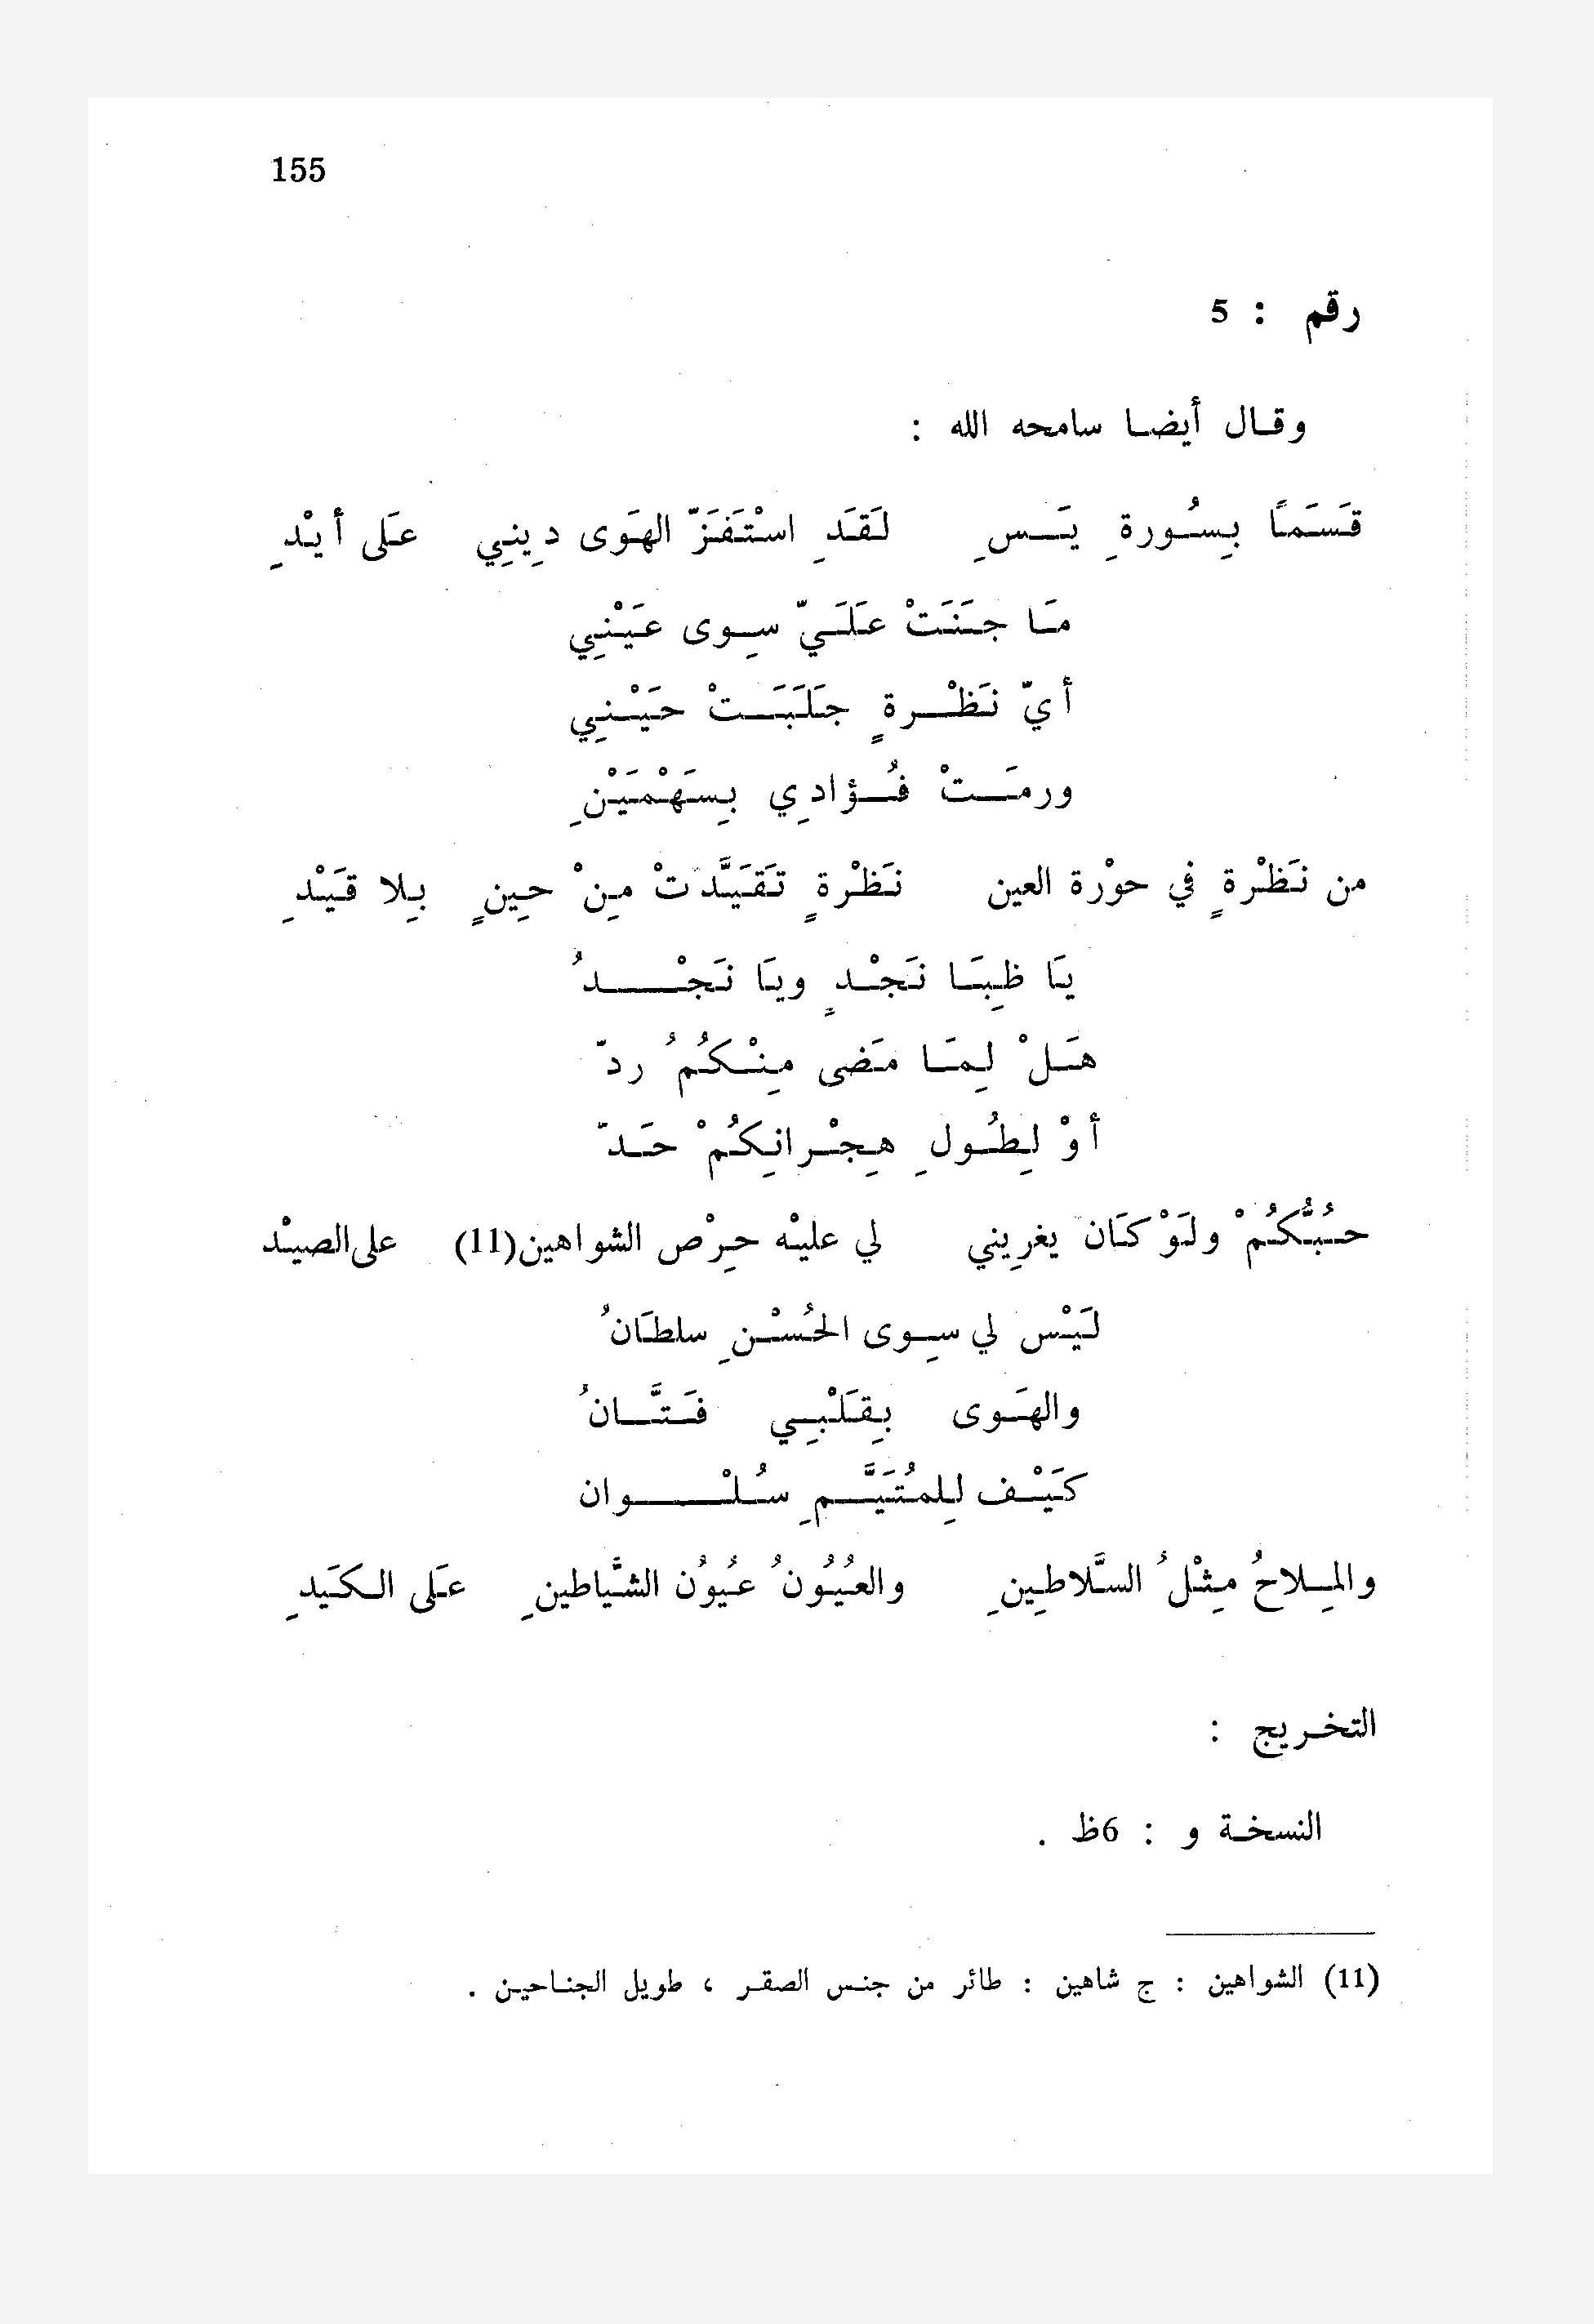 155
رقم : 5
وقال أيضا سامحه الله :
قَسَمَاً بِسُورةِ يَسِ لَقَدِ اسْتَفَزَّ الهَوى دِينِي عَلى أيْدِ
مَا جَنَتْ عَلَيَّ سِوى عَيْنِي
أيّ نَظْرةٍ جَلَبَتْ حَيْنِي
ورمَتْ فُؤادِي بِسَهْمَيْنِ
من نَظْرةٍ في حوْرة العين نَظْرةٍ تَقَيَّدَتْ مِنْ حِينٍ بِلا قَيْدِ
يَا ظِبَا نَجْدٍ ويَا نَجْدُ
هَلْ لِمَا مَضى مِنْكُمُ ردّ
أوْ لِطُولِ هِجْرانِكُمْ حَدّ
حُبُّكُمْ ولَوْ كَان يغرِيني لي عليْه حِرْص الشواهين(11) على الصيْد
لَيْس لي سِوى الحُسْنِ سلطَانُ
والهَوى بِقَلْبِي فَتَّانُ
كَيْف لِلمُتَيَّمِ سُلْوان
والمِلاحُ مِثْلُ السَّلاطِينِ والعُيُونُ عُيوُن الشَّياطينِ عَلى الكَيدِ
التخريج :
النسخة و : 6ظ .
(11) الشواهين : ج شاهين : طائر من جنس الصقر ، طويل الجناحين .